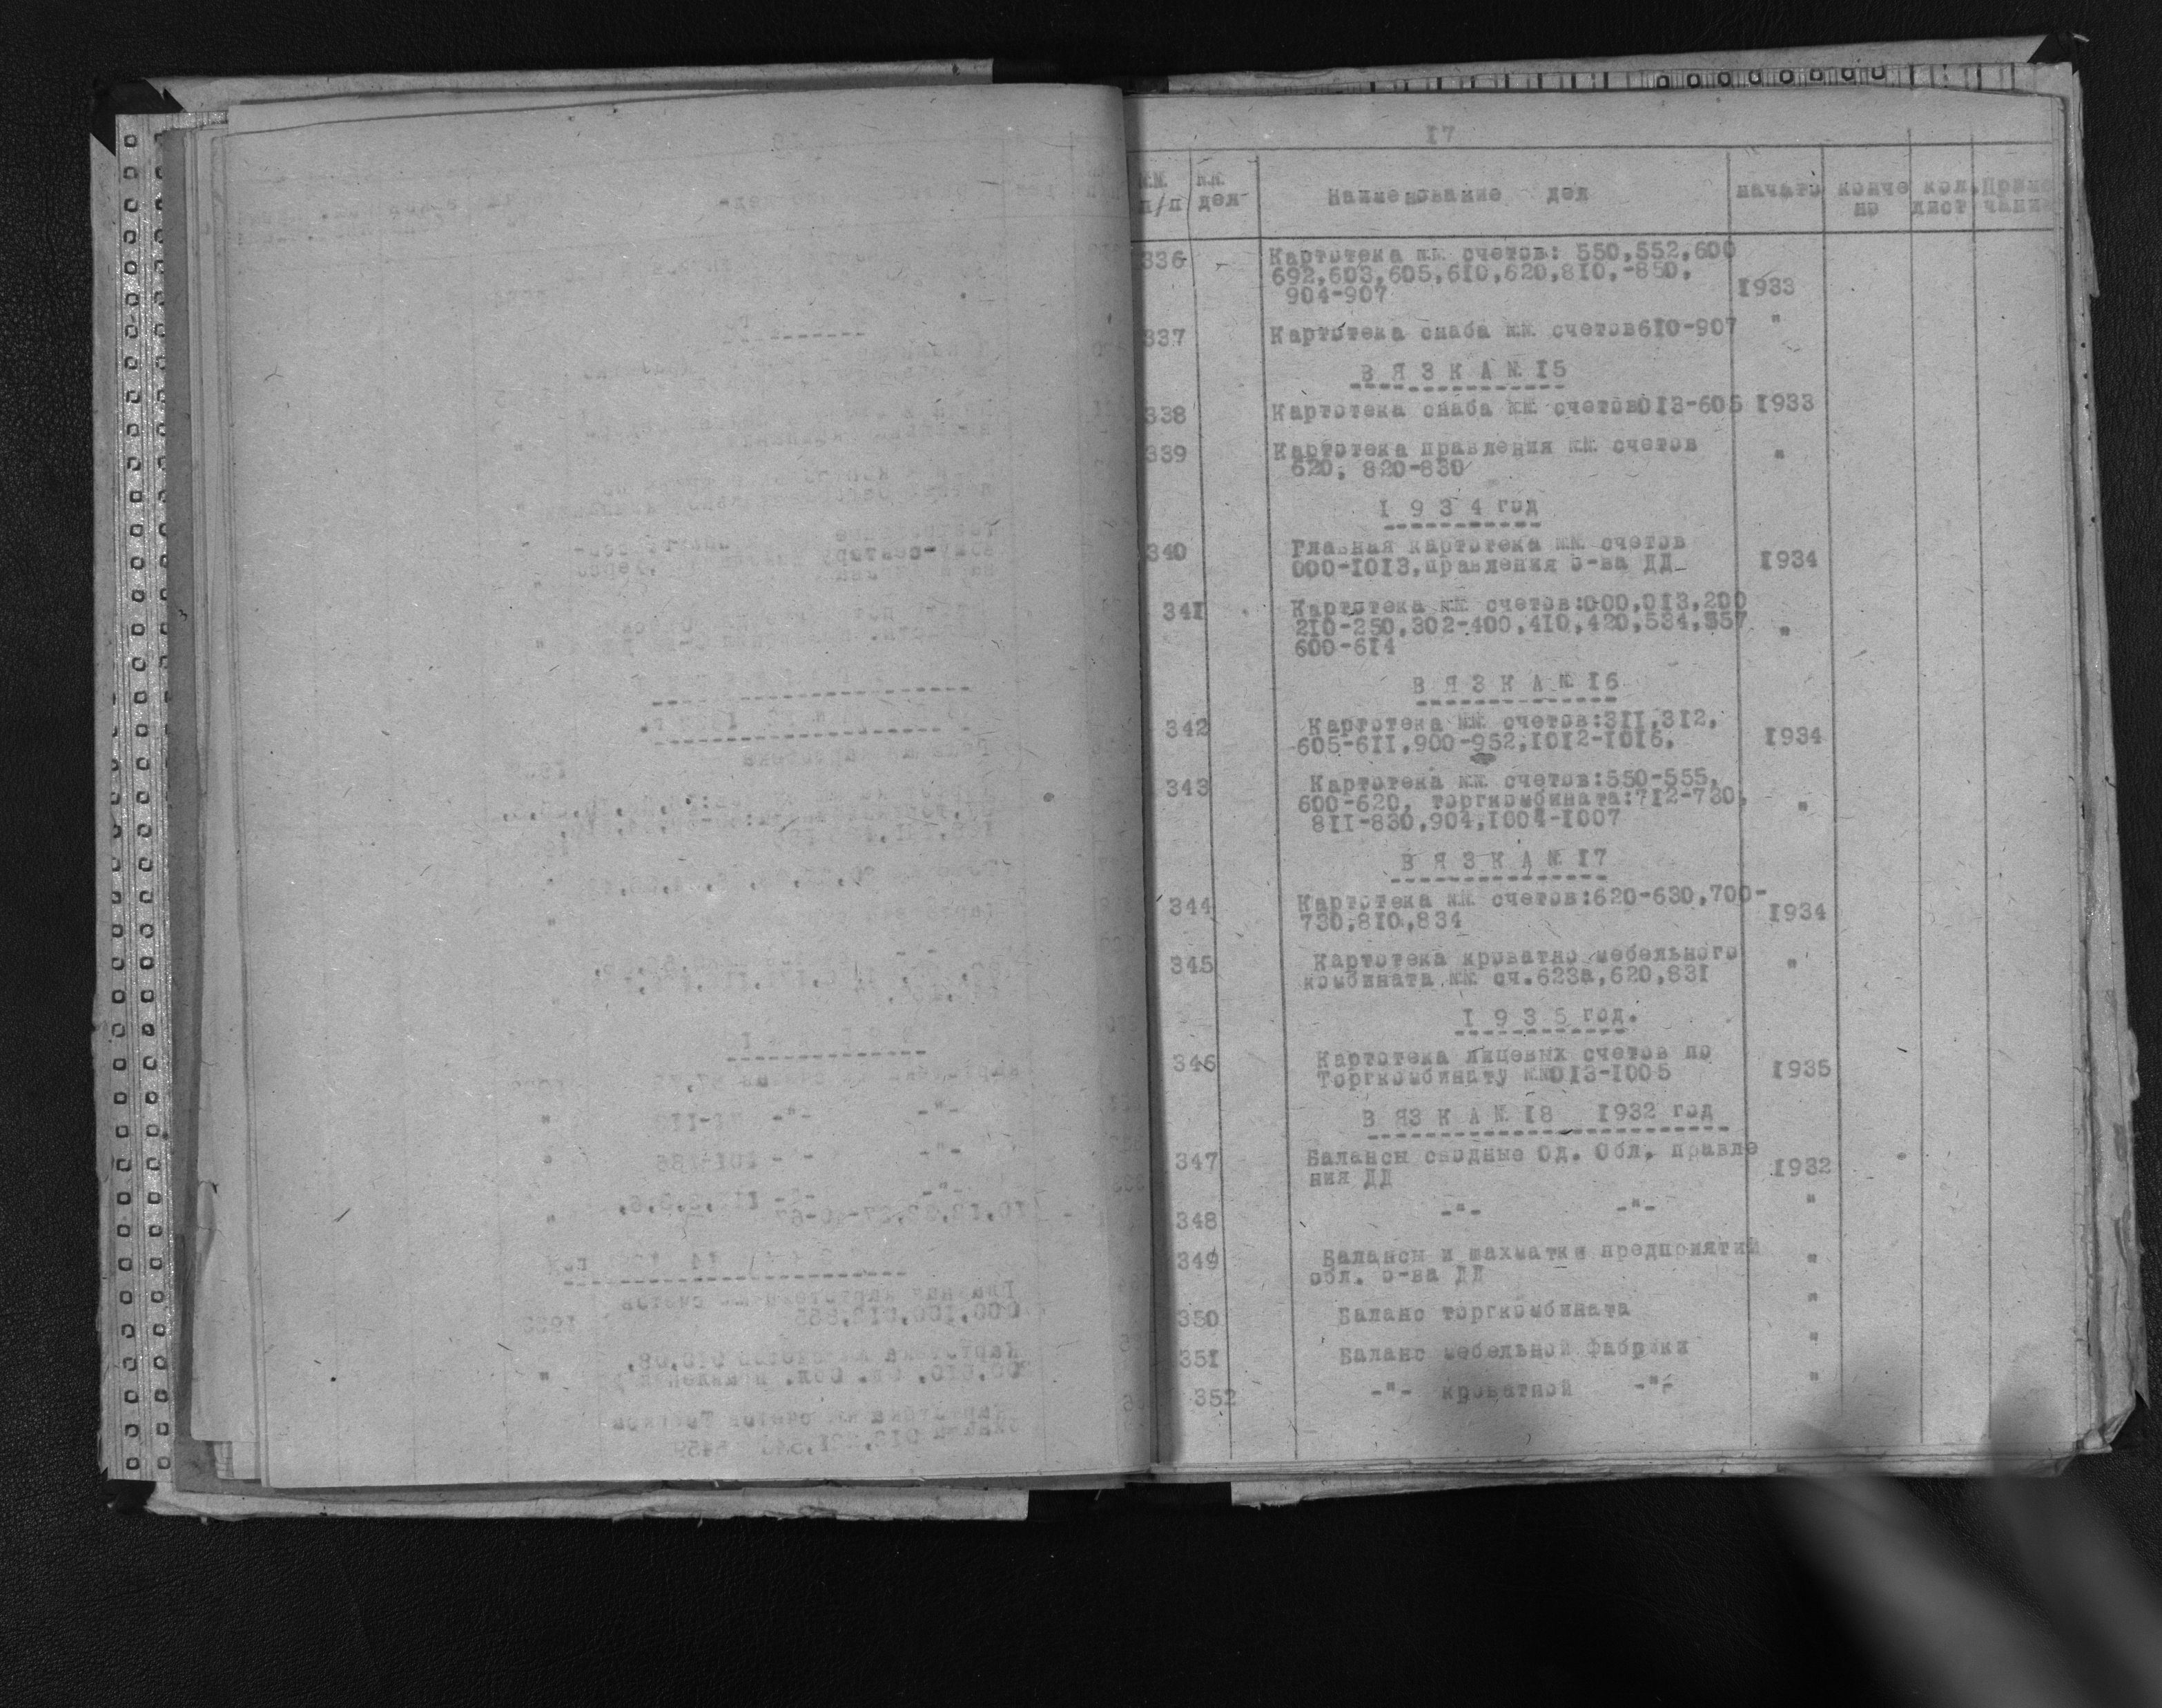 17
№№ п/п №№ дел Наименование дел начато конче но кол. лист Приме чание
336 - Картотека №№ счетов: 550,552,600
692,603,605,610,620,810,-850,
904-907 1933
337 Картотека снаба №№ счетов610-907 "
В Я З К А № 15
338 Картотека снаба №№ счетов013-605 1933
339 Картотека правления №№ счетов "
620, 820-830
1 9 3 4 год
340 Главная картотека №№ счетов
000-1013,правления о-ва ДД 1934
341 Картотека №№ счетов:000,013,200
210-250,302-400,410,420,534,557 "
600-614
В Я З К А № 16
342 Картотека №№ счетов:311,312,
605-611,900-952,1012-1016, 1934
343 Картотека №№ счетов:550-555,
600-620, торгкомбината:712-730, "
811-830,904,1004-1007
В Я З К А № 17
344 Картотека №№ счетов:620-630,700-
730,810,834 1934
345 Картотека кроватно мебельного "
комбината №№ сч.623а,620,831
1 9 3 5 год.
346 Картотека лицевых счетов по
Торгкомбинату №№013-1005 1935
В ЯЗ К А № 18 1932 год
347 Балансы сводные Од. Обл. правле
ния ДД 1932
348 -"- -"- "
349 Балансы и шахматки предприятий "
обл. о-ва ДД
350 Баланс торгкомбината "
351 Баланс мебельной фабрики "
352 -"- кроватной -"- "